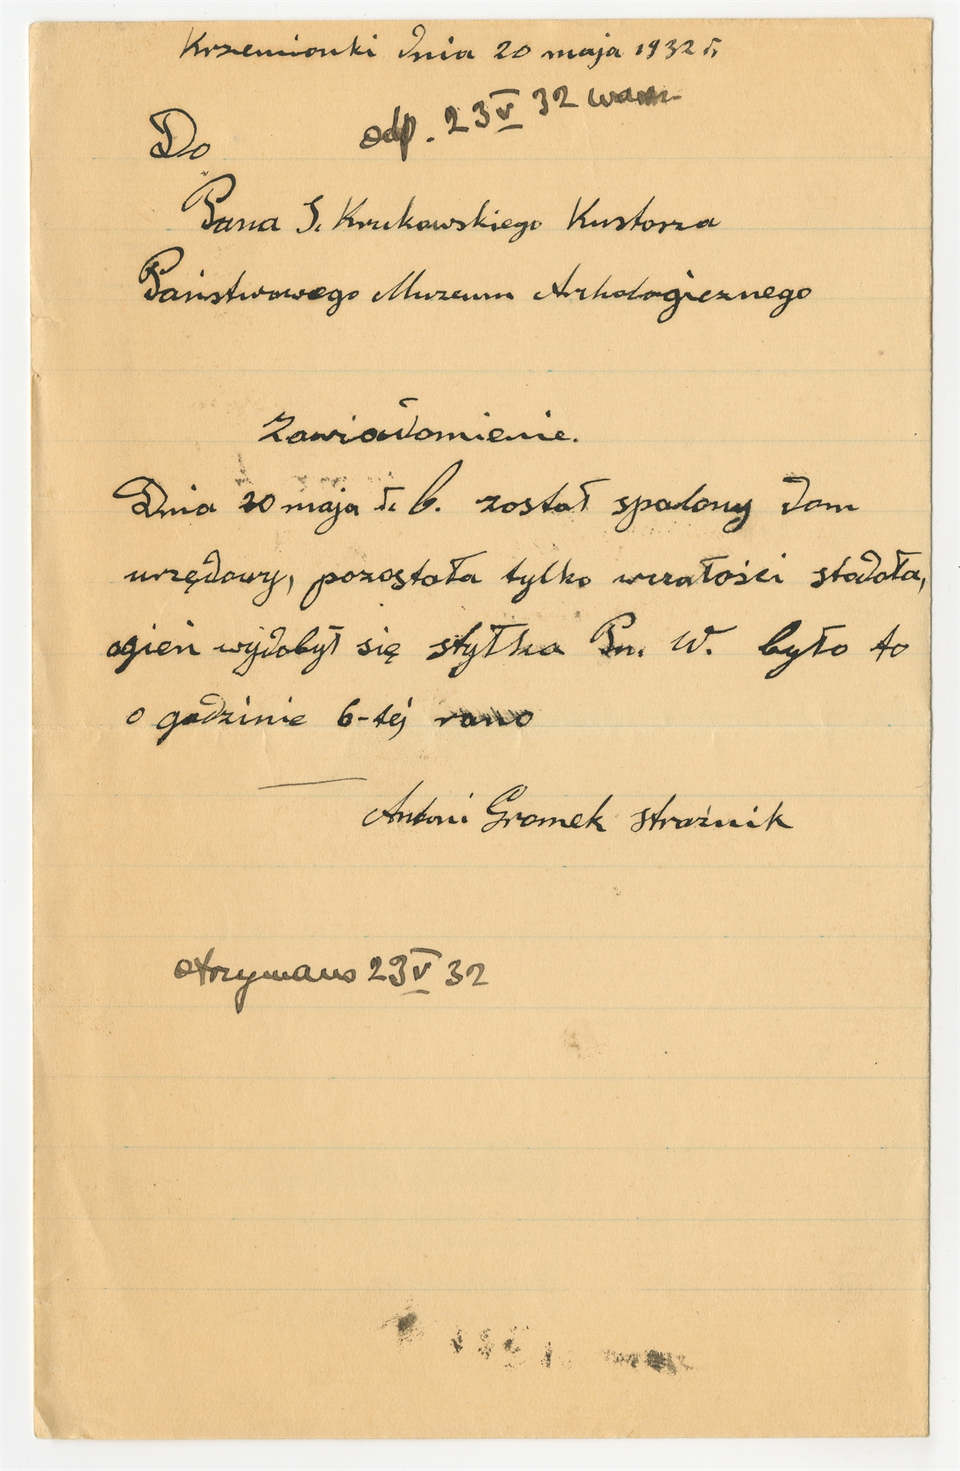 Krzemionki dnia 20 maja 1932 r.
odp. 23 V 32
Do
Pana S. Krukowskiego Kustosza
Państwowego Muzeum Arhologicznego
Zawiadomienie.
Dnia 20 maja r. b. został spalony dom
urzędowy, pozostała tylko wcałości stodoła,
ogień wydobył się styłka Pn. W. było to
o godzinie 6-tej rano
Antoni Gromek strażnik
otrzymano 23 V 32